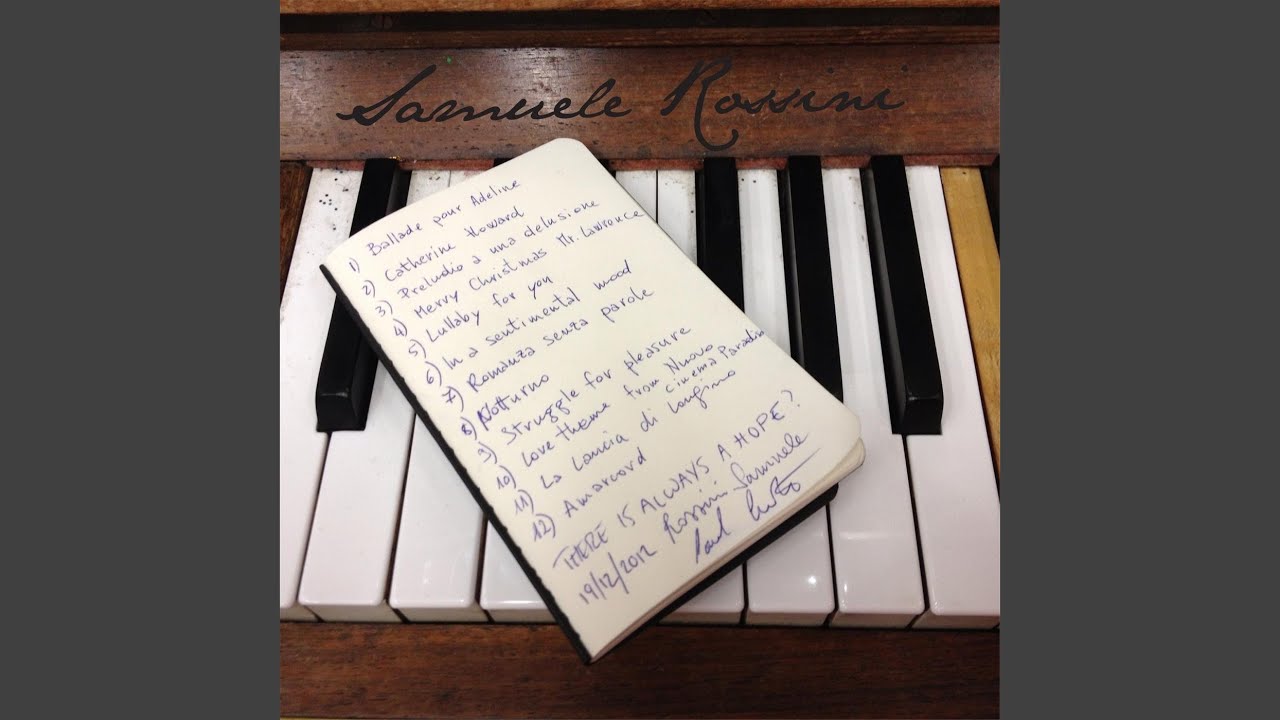 Samuele Rossini
1) Ballade pour Adeline
2) Catherine Howard
3) Preludio a una delusione
4) Merry Christmas Mr. Lawrence
5) Lullaby for you
6) In a sentimental mood
7) Romanza senza parole
8) Notturno
9) Struggle for pleasure
10) Love theme from Nuovo
cinema Paradiso
11) La Lancia di Longino
12) Amarcord
THERE IS ALWAYS A HOPE?
19/12/2012 Rossini Samuele